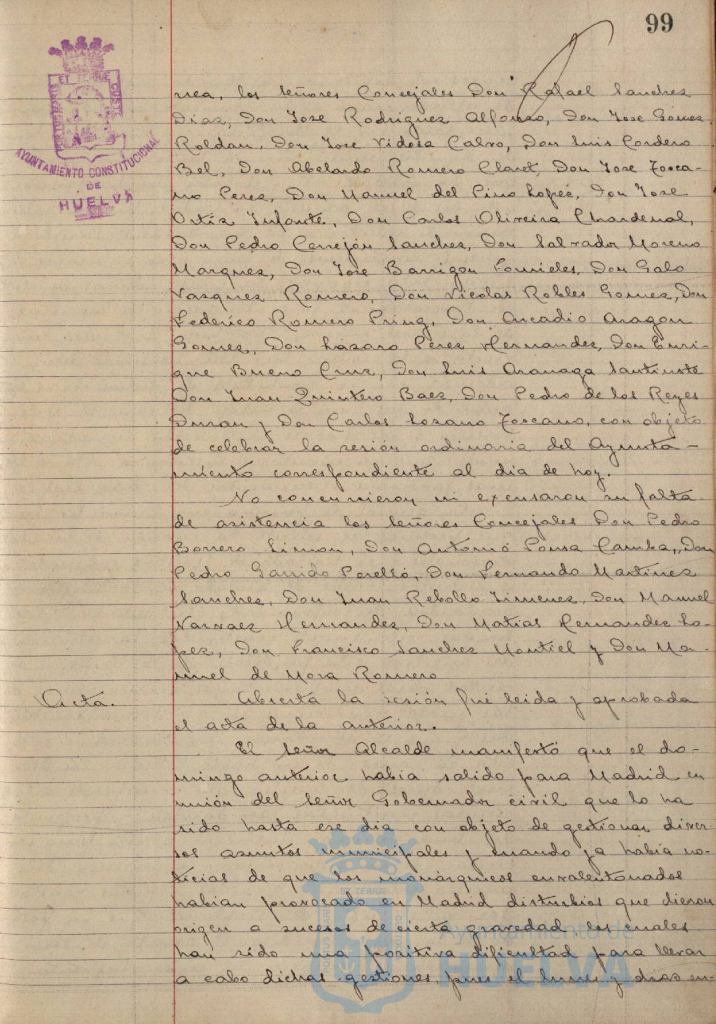 99
PORTUS MARIS ET TERRAE CUSTODIA
AYUNTAMIENTO CONSTITUCIONAL
DE
HUELVA
rrea, los señores Concejales Don Rafael Sanchez
Diaz, Don Jose Rodriguez Alfonso, Don Jose Gomez
Roldan, Don Jose Vidosa Calvo, Don Luis Cordero
Bel, Don Abelardo Romero Claret, Don Jose Tosca-
no Perez, Don Manuel del Pino Lopez, Don Jose
Ortiz Infante, Don Carlos Oliveira Chardenal,
Don Pedro Cerrejón Sanchez, Don Salvador Moreno
Marquez, Don Jose Barrigon Fornieles, Don Galo
Vazquez Romero, Don Nicolas Robles Gomez, Don
Federico Romero Pring, Don Arcadio Aragon
Gomez, Don Lázaro Perez Hernandez, Don Enri-
que Bueno Cruz, Don Luis
Don Juan Quintero Baez, Don Pedro de los Reyes
Duran y Don Carlos Lozano Toscano, con objeto
de celebrar la sesión ordinaria del Ayunta-
miento correspondiente al dia de hoy.
No concurrieron ni excusaron su falta
de asistencia los señores Concejales Don Pedro
Borrero Limon, Don Antonio Ponsa Don
Pedro Garrido Perelló, Don Fernando Martinez
Sanchez, Don Juan Rebollo Jimenez, Don Manuel
Narvaez Hernandez, Don Matias Hernandez Lo-
pez, Don Francisco Sanchez Montiel y Don Ma-
nuel de Mora Romero
Acta.
Abierta la sesión fué leida y aprobada
el acta de la anterior.
El señor Alcalde manifestó que el do-
mingo anterior habia salido para Madrid en
unión del señor Gobernador civil que lo ha
sido hasta ese dia con objeto de gestionar diver-
sos asuntos municipales y cuando ya habia no-
ticias de que los monárquicos envalentonados
habian provocado en Madrid disturbios que dieron
origen a sucesos de cierta gravedad los cuales
han sido una positiva dificultad para llevar
a cabo dichas gestiones, pues el lunes y dias en-
Ayuntamiento de
HUELVA